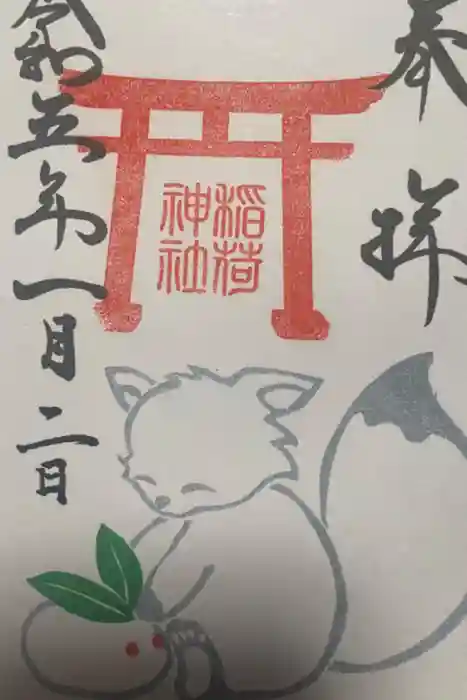 奉拝
稲荷
神社
令和五年一月二日